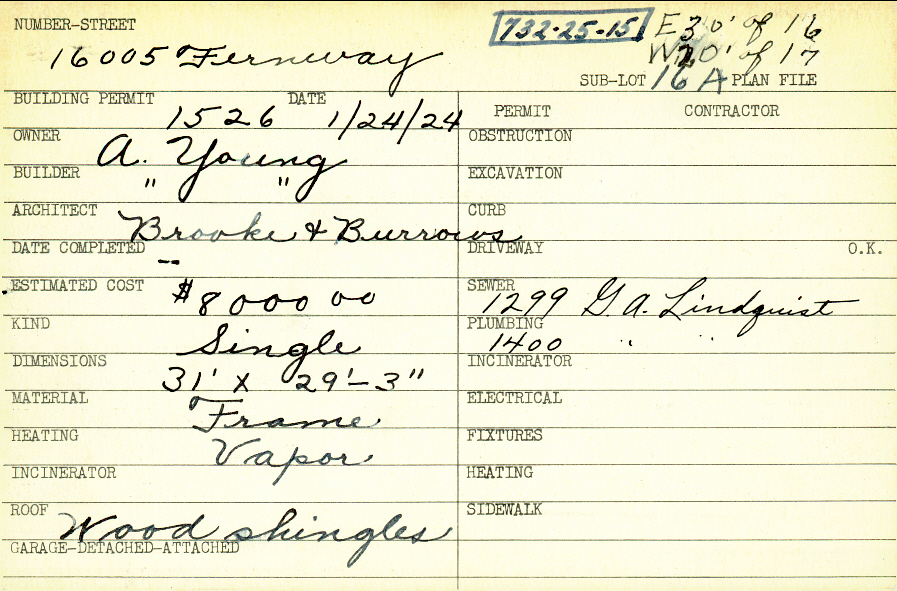 NUMBER-STREET
16005 Fernway
732-25-15
E 30' of 16
W 20' of 17
SUB-LOT 16 A PLAN FILE
BUILDING PERMIT 1526 DATE 1/24/24
OWNER A. Young
BUILDER " "
ARCHITECT Brooke & Burrows
DATE COMPLETED --
ESTIMATED COST $8000 00
KIND Single
DIMENSIONS 31' x 29'-3"
MATERIAL Frame
HEATING Vapor
INCINERATOR
ROOF Wood shingles
GARAGE-DETACHED-ATTACHED
PERMIT CONTRACTOR
OBSTRUCTION
EXCAVATION
CURB
DRIVEWAY O.K.
SEWER 1299 G. A. Lindquist
PLUMBING 1400 " "
INCINERATOR
ELECTRICAL
FIXTURES
HEATING
SIDEWALK